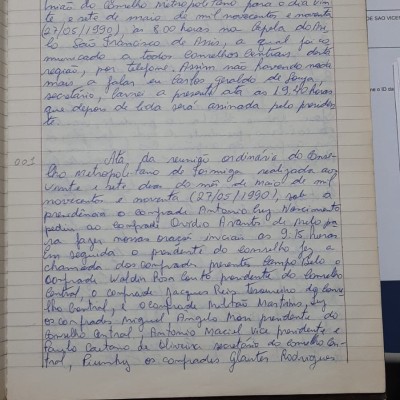 nião do Conselho Metropolitano para o dia vin-
te e sete de maio de mil novecentos e noventa
(27/05/1990), às 8:00 horas na Capela do Asi-
lo São Francisco de Assis, a qual foi co-
municado a todos Conselhos Centrais desta
região, por telefone. Assim não havendo nada
mais a falar eu Carlos Geraldo de
secretário, lavrei a presente ata às 19:40 horas
que depois de lida será assinada pelo presiden-
te.
001
Ata, da reunião ordinária do Conse-
lho Metropolitano de Formiga realizada aos
vinte e sete dias do mês de maio de mil
novecentos e noventa (27/05/1990), sob a
presidência o confrade Antonio Nascimento
pediu ao confrade Ovidio de Melo pa-
ra fazer nossas oração iniciais as 9:15 horas
Em seguida o presidente do conselho fez a
chamada dos confrades presentes Campo Belo o
confrade presidente do Conselho
Central, o confrade Jacques Reis tesoureiro do Conse-
lho Central, e o confrade Milton Martins,
os confrades Miguel Angelo presidente do
Conselho Central, Antonio Maciel vice presidente e
Paulo Caetano de Oliveira secretário do Conselho Cen-
tral, Piumhy os confrades Glaites Rodrigues
DE SÃO VICEN